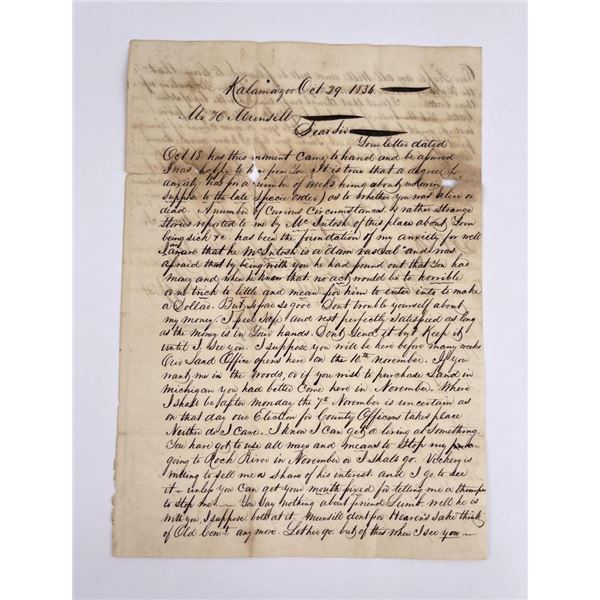 Kalamazoo Oct 29. 1836.
Mr H Munsill
Dear Sir
Your letter dated
Oct 18 has this moment came to hand and be assured
I was happy to hear from You. It is true that a degree of
anxiety has for a number of weeks hung about me (owing I
suppose to the late Specie order) as to whether you was alive or
dead. A number of Curious Circumstances, & rather strange
Stories reported to me by McIntosh of this place about Your
being sick &c has been the foundation of my anxiety for well
I aware that he McIntosh is a dam rascal and was
afraid that by being with you he had found out that You had
money and when he know that no act would be to horrible
or a trick to little and mean for him to enter into to make
a Dollar. But so far so good Dont trouble yourself about
my money. I feel safe and rest perfectly satisfied as long
as the money is in Your hands. Dont send it but keep it
until I see you. I suppose you will be here before many weeks
Our Land Office opens here on the 10th November. If you
want me in the woods, or if you wish to purchase Land in
Michigan you had better come here in November. Where
I shall be after monday the 7th November is uncertain as
on that day our Election for County Officers takes place
Neither do I care. I know I can get a living at something.
You have got to use all ways and means to stop my
going to Rock River in November or I shall go. Vickery is
willing to sell me a share of his interest and I go to see
it - unless you can get your mouth fixed for telling me a thumper
to stop me — You say nothing about friend Lunt well he is
with you, I suppose both at it. Munsill dont for Heavens sake think
of Old Comt any more. Let her go. but of this when I see you —